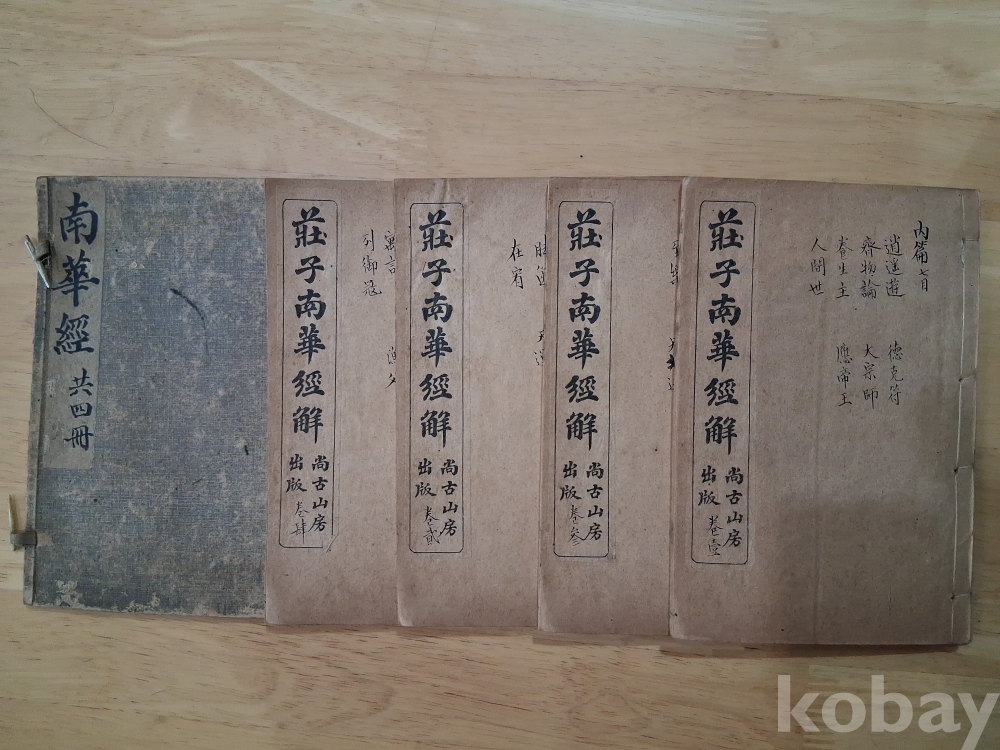 南華經 共四冊
莊子南華經解
尚古山房
出版 卷肆
寓言
列御冦
莊子南華經解
尚古山房
出版 卷貳
在宥
莊子南華經解
尚古山房
出版 卷叁
莊子南華經解
尚古山房
出版 卷壹
內篇七目
逍遥遊 德充符
齊物論 大宗師
養生主 應帝王
人間世
kobay